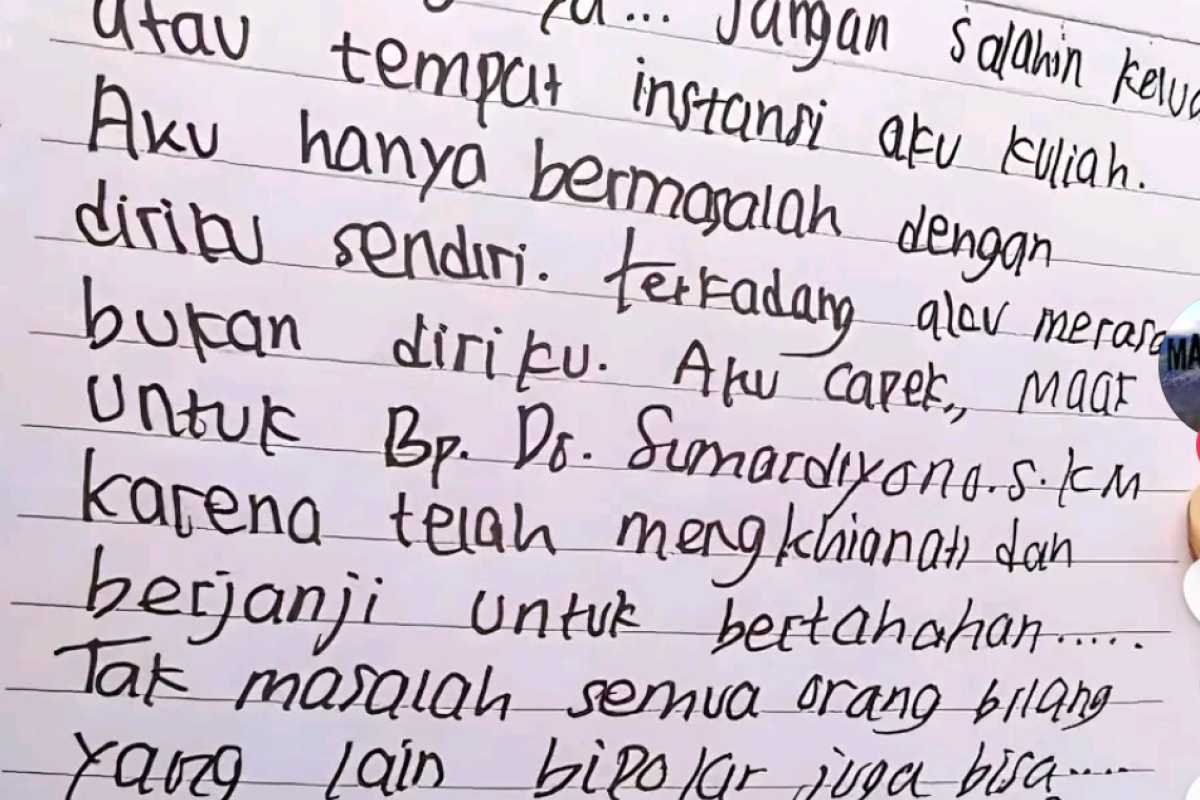 ya... Jangan salahin kelua
atau tempat instansi aku kuliah.
Aku hanya bermasalah dengan
diriku sendiri. terkadang aku merasa
bukan diriku. Aku capek,, maaf
untuk Bp. Dr. Sumardiyono.S.KM
karena telah mengkhianati dan
berjanji untuk bertahahan.....
Tak masalah semua orang bilang
yang lain bipolar juga bisa....
MA